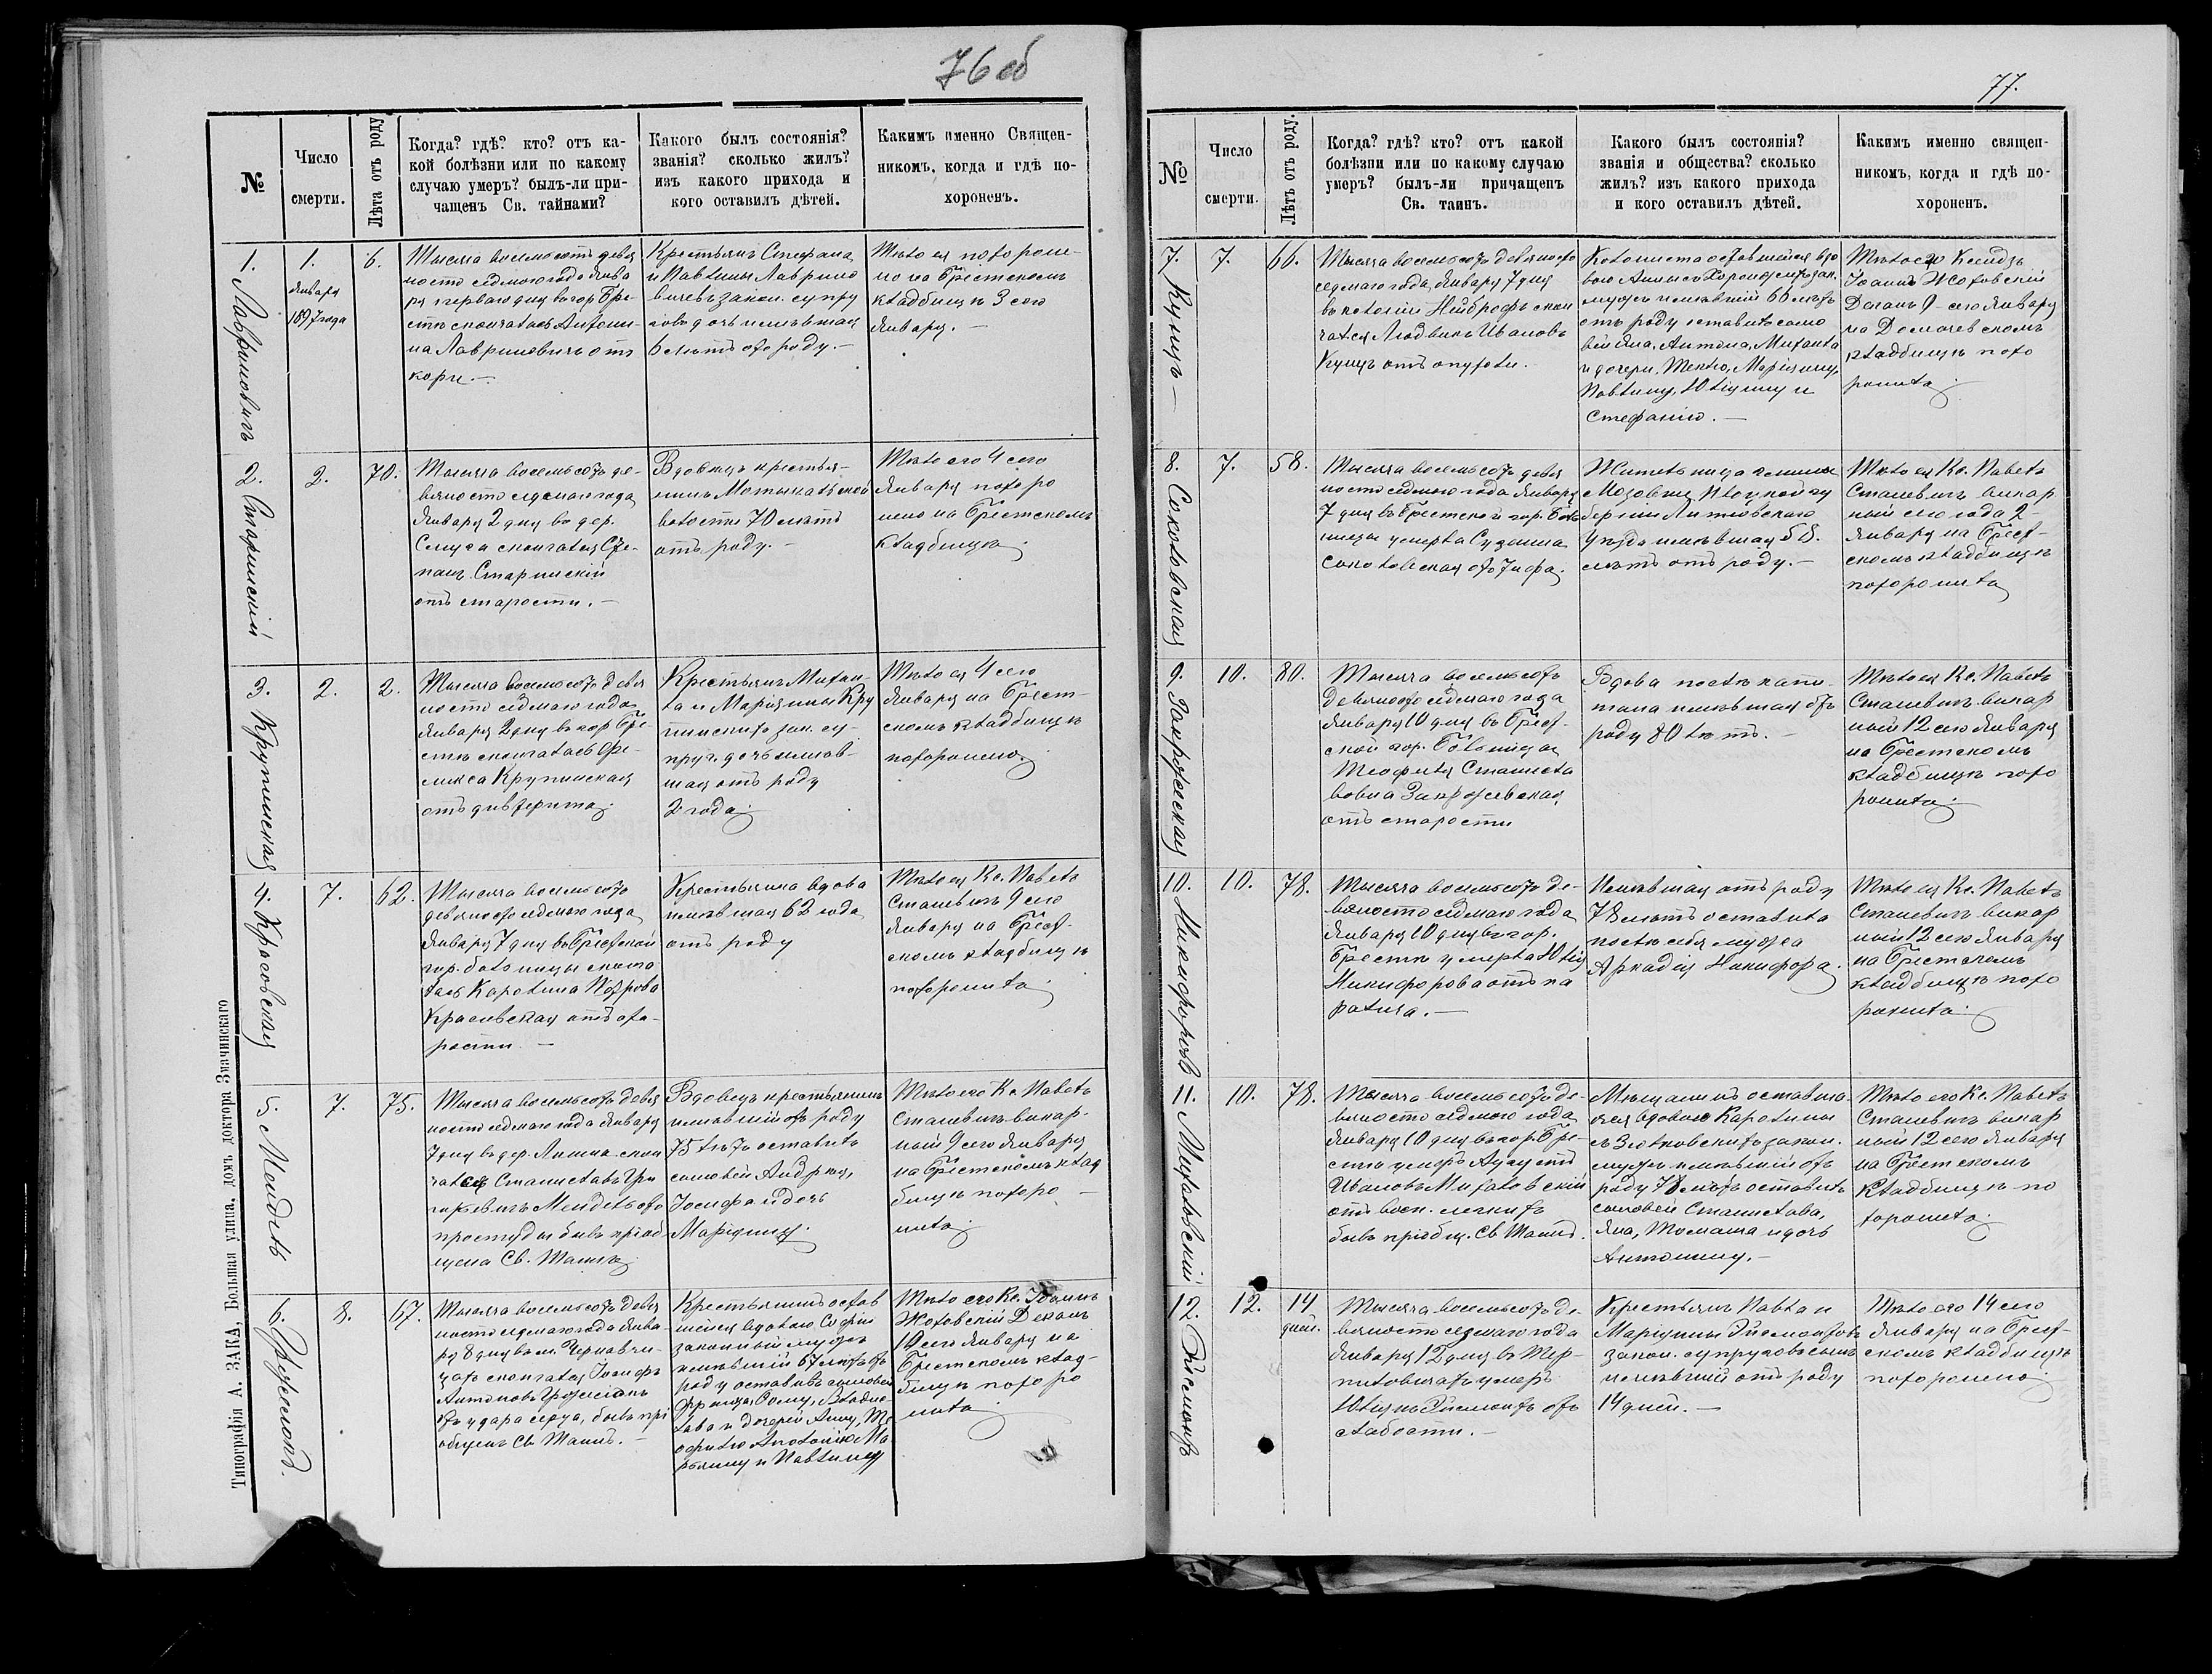 76 об
№
Число
смерти.
Лѣта отъ роду
Когда? гдѣ? кто? отъ ка-
кой болѣзни или по какому
случаю умеръ? былъ-ли при-
чащенъ Св. тайнами?
Какого былъ состоянія?
званія? сколько жилъ?
изъ какого прихода и
кого оставилъ дѣтей.
Какимъ именно Священ-
никомъ, когда и гдѣ по-
хороненъ.
1. Лавриновичъ
1.
Января
1897 года
6.
Тысяча восемьсотъ девя
носто седмого года Янва
ря перваго дня въ гор. Бре-
стѣ скончалась Антони-
на Лавриновичъ отъ
кори. —
Крестьянъ Стефана
и Павлины Лаврино
вичевъ закон. супру
говъ дочь имѣвшая
6 лѣтъ отъ роду. —
Тѣло ея похороне-
но на Брестскомъ
кладбищѣ 3 сего
Января. —
2. Старинскій
2.
70.
Тысяча восемьсотъ де-
вяносто седмаго года
Января 2 дня въ дер.
скончался Сте-
панъ Старинскій
отъ старости. —
Вдовецъ крестья-
нинъ Мотыкальской
волости 70 лѣтъ
отъ роду. —
Тѣло его 4 сего
Января похоро
нено на Брестскомъ
кладбищѣ.
3. Крупинская
2.
2.
Тысяча восемьсотъ девя
носто седмаго года
Января 2 дня въ гор. Бре-
стѣ скончалась Фе-
ликса Крупинская
отъ дивтерита.
Крестьянъ Михаи-
ла и Маріянны Кру
пинскихъ зак. су-
пруг. дочь имѣв-
шая отъ роду
2 года.
Тѣло ея 4 сего
Января на Брест-
скомъ кладбищѣ
похоронено.
4. Красовская
7.
62.
Тысяча восемьсотъ
девяносто седмаго года
Января 7 дня въ Брестской
гор. больницы сконча
лась Каролина Петрова
Красовская отъ ста-
рости. —
Крестьянка вдова
имѣвшая 62 года
отъ роду
Тѣло ея Кс. Павелъ
Сташевичъ 9 сего
Января на Брест-
скомъ кладбищѣ
похоронилъ.
5. Мендель
7.
75.
Тысяча восемьсотъ девя
носто седмаго года Января
7 дня въ дер. скон
чался Станиславъ Гри
горьевичъ Мендель отъ
простуды бывъ пріоб
щенъ Св. Таинъ.
Вдовецъ крестьянинъ
имѣвшій отъ роду
75 лѣтъ оставилъ
сыновей Андрея,
Іосифа и дочь
Маріянну.
Тѣло его Кс. Павелъ
Сташевичъ викар-
ный 9 сего Января
на Брестскомъ клад
бищѣ похоро-
нилъ.
6.
8.
67.
Тысяча восемьсотъ девя
носто седмаго года Янва-
ря 8 дня въ им. Чернавчи-
цахъ скончался Іосифъ
Антоновъ
отъ удара сердца, бывъ прі
общенъ Св. Таинъ. —
Крестьянинъ остав
шейся вдовою Софіи
законный мужъ
имѣвшій 67 лѣтъ отъ
роду оставивъ сыновей
Франца, Ѳому, Владис-
лава и дочерей Анну, Те
офилю Аполонію Ма
ріянну и Павлину
Тѣло его Кс. Іоаннъ
Жотовскій Деканъ
10 сего Января на
Брестскомъ клад-
бищѣ похоро
нилъ.
Типографія А. ЗАКА, Большая улица. домъ доктора Значинскаго
77.
№
Число
смерти.
Лѣтъ отъ роду.
Когда? гдѣ? кто? отъ какой
болѣзни или по какому случаю
умеръ? былъ-ли причащенъ
Св. таинъ.
Какого былъ состоянія?
званія и общества? сколько
жилъ? изъ какого прихода
и кого оставилъ дѣтей.
Какимъ именно священ-
никомъ, когда и гдѣ по-
хороненъ.
7. Кунцъ —
7.
66.
Тысяча восемьсотъ девяносто
седмаго года, Января 7 дня
въ колоніи Нейброфъ скон
чался Людвикъ Ивановъ
Кунцъ отъ опухоли. —
Колониста оставшейся вдо
вою Аннысъ закон.
мужъ имѣвшій 66 лѣтъ
отъ роду оставилъ сыно
вей Яна, Антона, Михаила
и дочери, Теклю, Маріянну,
Павлину, Юліянну и
Стефанію. —
Тѣло его Ксендзъ
Іоаннъ Жотовскій
Деканъ 9 сего Января
на Домачевскомъ
кладбищѣ похо
ронилъ.
8. Соколовская
7.
58.
Тысяча восемьсотъ девя
носто седмаго года Января
7 дня въ Брестской гор. Боль
ницы умерла Сузанна
Соколовская отъ тифа.
Жительница гмины
Мазовше Плоцкой гу
берніи Липновскаго
уѣзда имѣвшая 58.
лѣтъ отъ роду. —
Тѣло ея Кс. Павелъ
Сташевичъ викар
ный сего года 9
Января на Брест-
скомъ кладбищѣ
похоронилъ
9. Закржевская
10.
80.
Тысяча восемьсотъ
девяносто седмаго года
Января 10 дня въ Брест-
ской гор. Больницы
Теофиля Станисла
вовна Закржевская
отъ старости
Вдова послѣ капи-
тана имѣвшая отъ
роду 80 лѣтъ. —
Тѣло ея Кс. Павелъ
Сташевичъ викар
ный 12 сего Января
на Брестскомъ
кладбищѣ похо
ронилъ.
10. Никифоровъ
10.
78.
Тысяча восемьсотъ де-
вяносто седмаго года
Января 10 дня въ гор.
Брестѣ умерла Юлія
Никифорова отъ па
ралича. —
Имѣвшая отъ роду
78 лѣтъ оставила
послѣ себя мужа
Аркадія Никифора.
Тѣло ея Кс. Павелъ
Сташевичъ викар
ный 12 сего Января
на Брестскомъ
кладбищѣ похо
ронилъ.
11. Михаловскій
10.
78.
Тысяча восемьсотъ де-
вяносто седмаго года
Января 10 дня въ гор. Бре-
стѣ умеръ Августъ
Ивановъ Михаловскій
отъ восп. легкихъ
бывъ пріобщ. Св. Таинъ.
Мѣщанинъ оставша-
гося вдовою Каролины
съ Зелковскихъ закон.
мужъ имѣвшій отъ
роду 78 лѣтъ оставилъ
сыновей Станислава,
Яна, Томаша и дочь
Антонину. —
Тѣло его Кс. Павелъ
Сташевичъ викар
ный 12 сего Января
на Брестскомъ
кладбищѣ по
хоронилъ.
12. Эйсмонтъ
12.
14
дней.
Тысяча восемьсотъ де-
вяносто седмаго года
Января 12 дня въ Тер-
пиловичахъ умеръ
Юліянъ Эйсмонтъ отъ
слабости. —
Крестьянъ Павла и
Маріянны Эйсмонтовъ
закон. супруговъ сынъ
имѣвшій отъ роду
14 дней. —
Тѣло его 14 сего
Января на Брест-
скомъ кладбищѣ
похоронено.